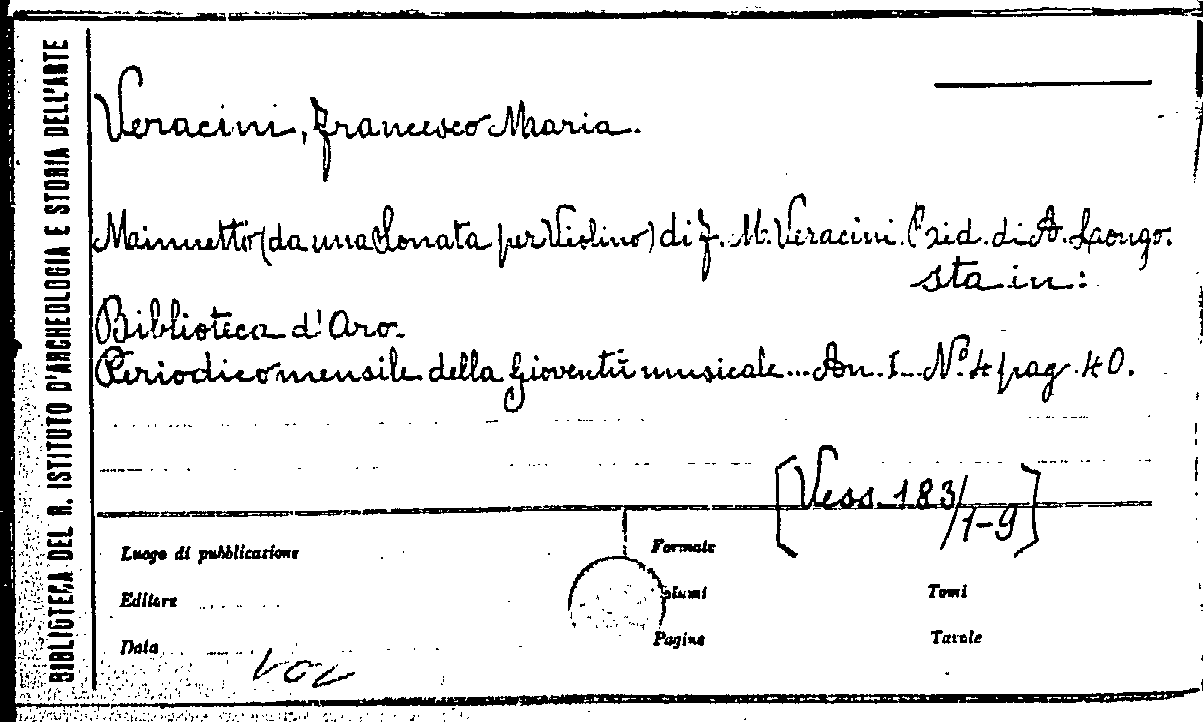 BIBLIOTECA DEL R. ISTITUTO D'ARCHEOLOGIA E STORIA DELL'ARTE
Veracini, Francesco Maria.
Mainuetto (da una Sonata per Violino) di F. M. Veracini. Rid. di A. Longo.
sta in:
Biblioteca d'Oro.
Periodico mensile della Gioventù musicale... An. I. N.° 4 pag. 40.
[Vess. 183/1-9]
Luogo di pubblicazione Formato
Editore Volumi Tomi
Data Pagine Tavole
VOL